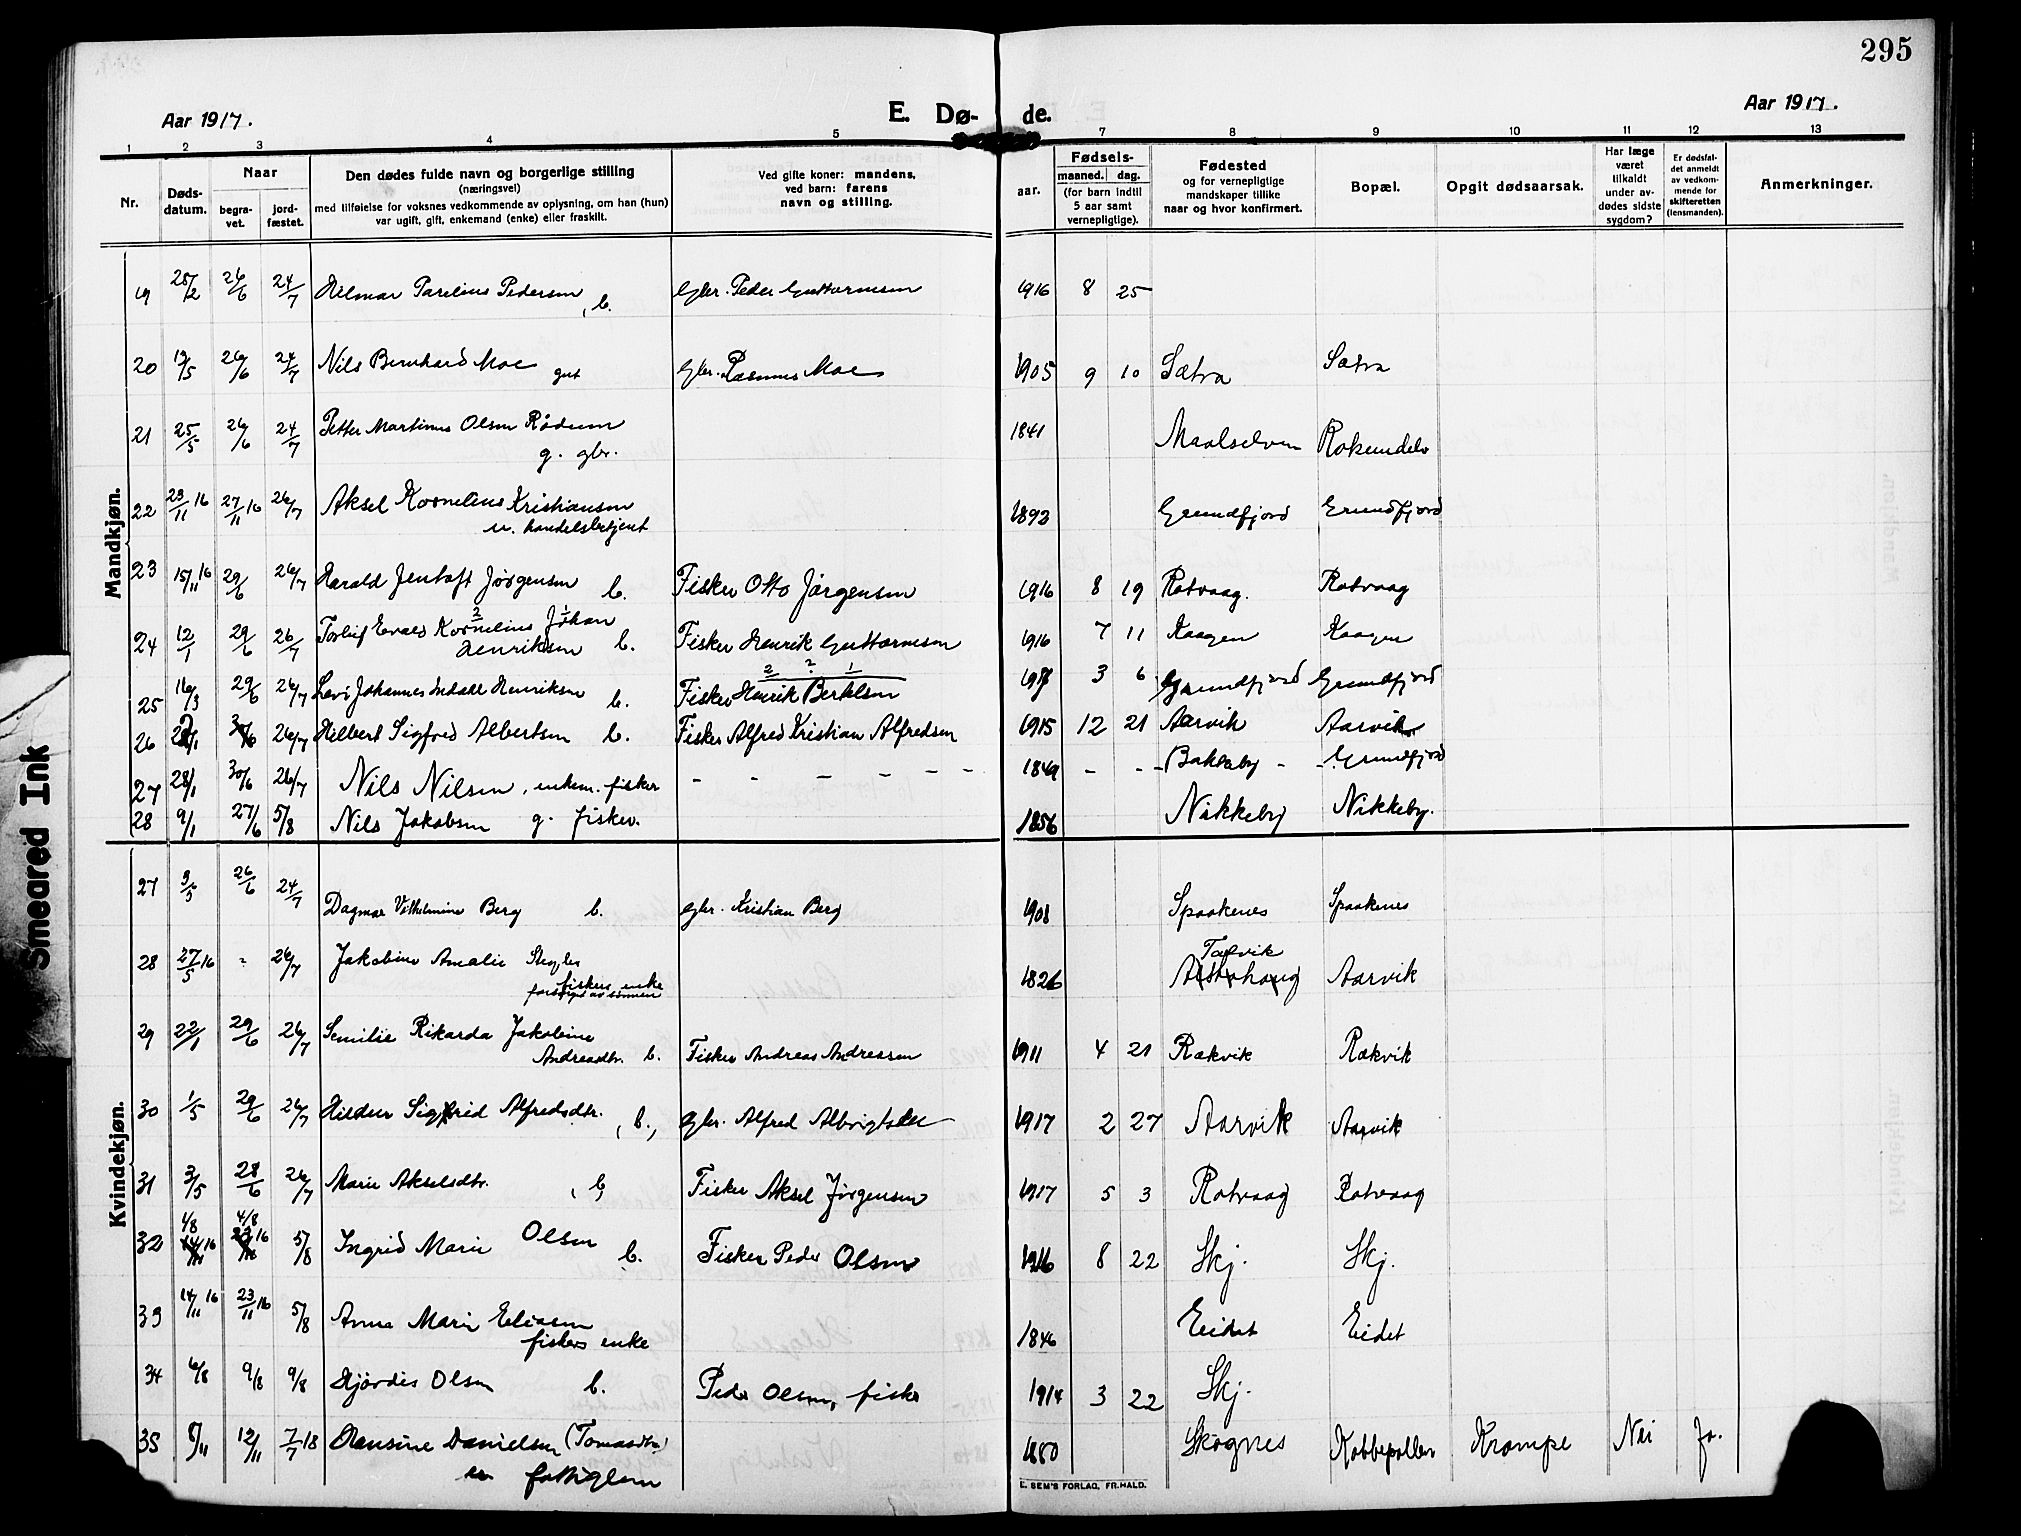 295
Aar 1917.
E. Dø-
de.
Aar 1917.
1 2 3 4 5 7 8 9 10 11 12 13
Nr.
Døds-
datum.
Naar
begra-
vet.
jord-
fæstet.
Den dødes fulde navn og borgerlige stilling
(næringsvei)
med tilføielse for voksnes vedkommende av oplysning, om han (hun)
var ugift, gift, enkemand (enke) eller fraskilt.
Ved gifte koner: mandens,
ved barn: farens
navn og stilling.
aar.
Fødsels-
maaned. dag.
(for barn indtil
5 aar samt
vernepligtige).
Fødested
og for vernepligtige
mandskaper tillike
naar og hvor konfirmert.
Bopæl.
Opgit dødsaarsak.
Har læge
været
tilkaldt
under av-
dødes sidste
sygdom?
Er dødsfal-
det anmeldt
av vedkom-
mende for
skifteretten
(lensmanden).
Anmerkninger.
Mandkjøn.
19 25/2 26/6 24/7 Hilmar Parelius Pedersen, b. Gbr. Peder Guttormsen 1916 8 25
20 19/5 26/6 24/7 Nils Bernhard Moe gut Gbr. Rasmus Moe 1905 9 10 Sætra Sætra
21 25/5 26/6 24/7 Petter Martinus Olsen Rødum 1841 Maalselven
g. gbr.
22 23/11 16 27/11 16 26/7 Aksel Kornelius Kristiansen 1893 Grundfjord Grundfjord
u. handelsbetjent
23 15/11 16 29/6 26/7 Harald Jentoft Jørgensen b. Fisker Otto Jørgensen 1916 8 19 Rotvaag. Rotvaag
24 12/1 29/6 26/7 Torleif Evald Kornelius Johan
Henriksen b. Fisker Henrik Guttormsen 1916 7 11 Kaagen Kaagen
25 16/3 29/6 26/7 Levi Johannes Indahl Henriksen b. Fisker Henrik Bertelsen 1917 3 6 Grundfjord Grundfjord
26 26/7 Hilbert Sigfred Albertsen b. Fisker Alfred Kristian Alfredsen 1915 12 21 Aarvik Aarvik
27 28/1 30/6 26/7 Nils Nilsen, enkem. fisker - - - - - - 1849 - - - Bakkeby - - Grundfjord
28 9/1 27/6 5/8 Nils Jakobsen g. fisker. 1856 Nikkeby Nikkeby.
Kvindekjøn.
27 26/6 24/7
Dagmar Vilhelmine Berg b. gbr. Kristian Berg 1908 Spaakenes Spaakenes
28 27/5 16 " 26/7 Jakobine Amalie 1826 Talvik Aarvik
fiskers enke
forsørget av sønnen
29 22/1 29/6 26/7 Semilie Rikarda Jakobine
Andreasdtr. b. Fisker Andreas Andreasen 1911 4 21 Rakvik Rakvik
30 1/5 29/6 26/7 Hildur Sigfrid Alfredsdtr., b., gbr. Alfred 1917 2 27 Aarvik Aarvik
31 3/5 28/6 26/7 Marie Akselsdtr., b. Fisker Aksel Jørgensen 1917 5 3 Rotvaag Rotvaag
4/8 4/8
32 5/8 Ingrid Marie Olsen b. Fisker Peder Olsen 1916 8 22 Skj. Skj.
33 14/11 16 23/11 16 5/8 Anna Marie Eliasen 1846 Eidet Eidet
fiskers enke
34 6/8 9/8 9/8 Hjørdis Olsen b. Peder Olsen, fisker 1914 3 22 Skj.
35 12/11 7/7 18 Hansine Danielsen (Tomasdtr.) 1850 Skognes Kobbepollen Krampe Nei Ja.
en fattiglem
E. SEM'S FORLAG, FR.HALD.
Smeared Ink